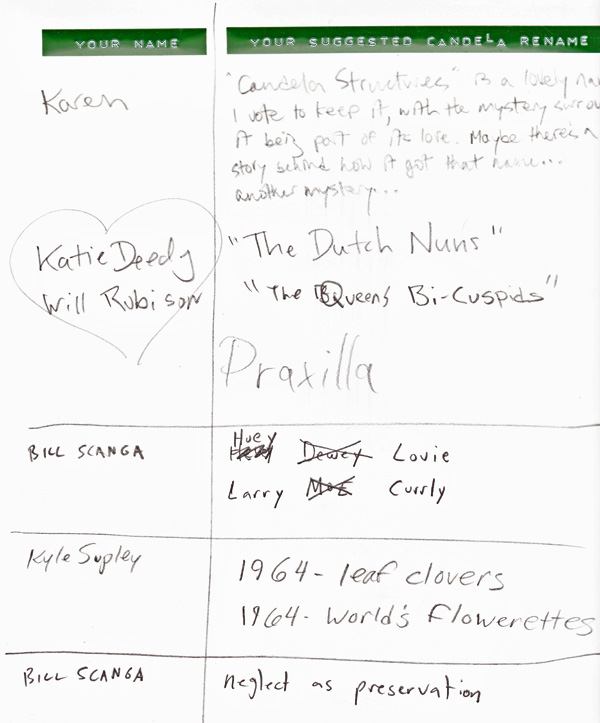 YOUR NAME
YOUR SUGGESTED CANDELA RENAME
Karen
"Candela Structures" is a lovely na
I vote to keep it, with the mystery surrou
it being part of its lore. Maybe there's a
story behind how it got that name...
another mystery...
Katie Deedy
"The Dutch Nuns"
Will Rubison
"The Queens Bi-Cuspids"
Praxilla
BILL SCANGA
Huey Dewey Louie
Larry Moe Currly
Kyle Supley
1964- leaf clovers
1964- World's flowerettes
BILL SCANGA
neglect as preservation